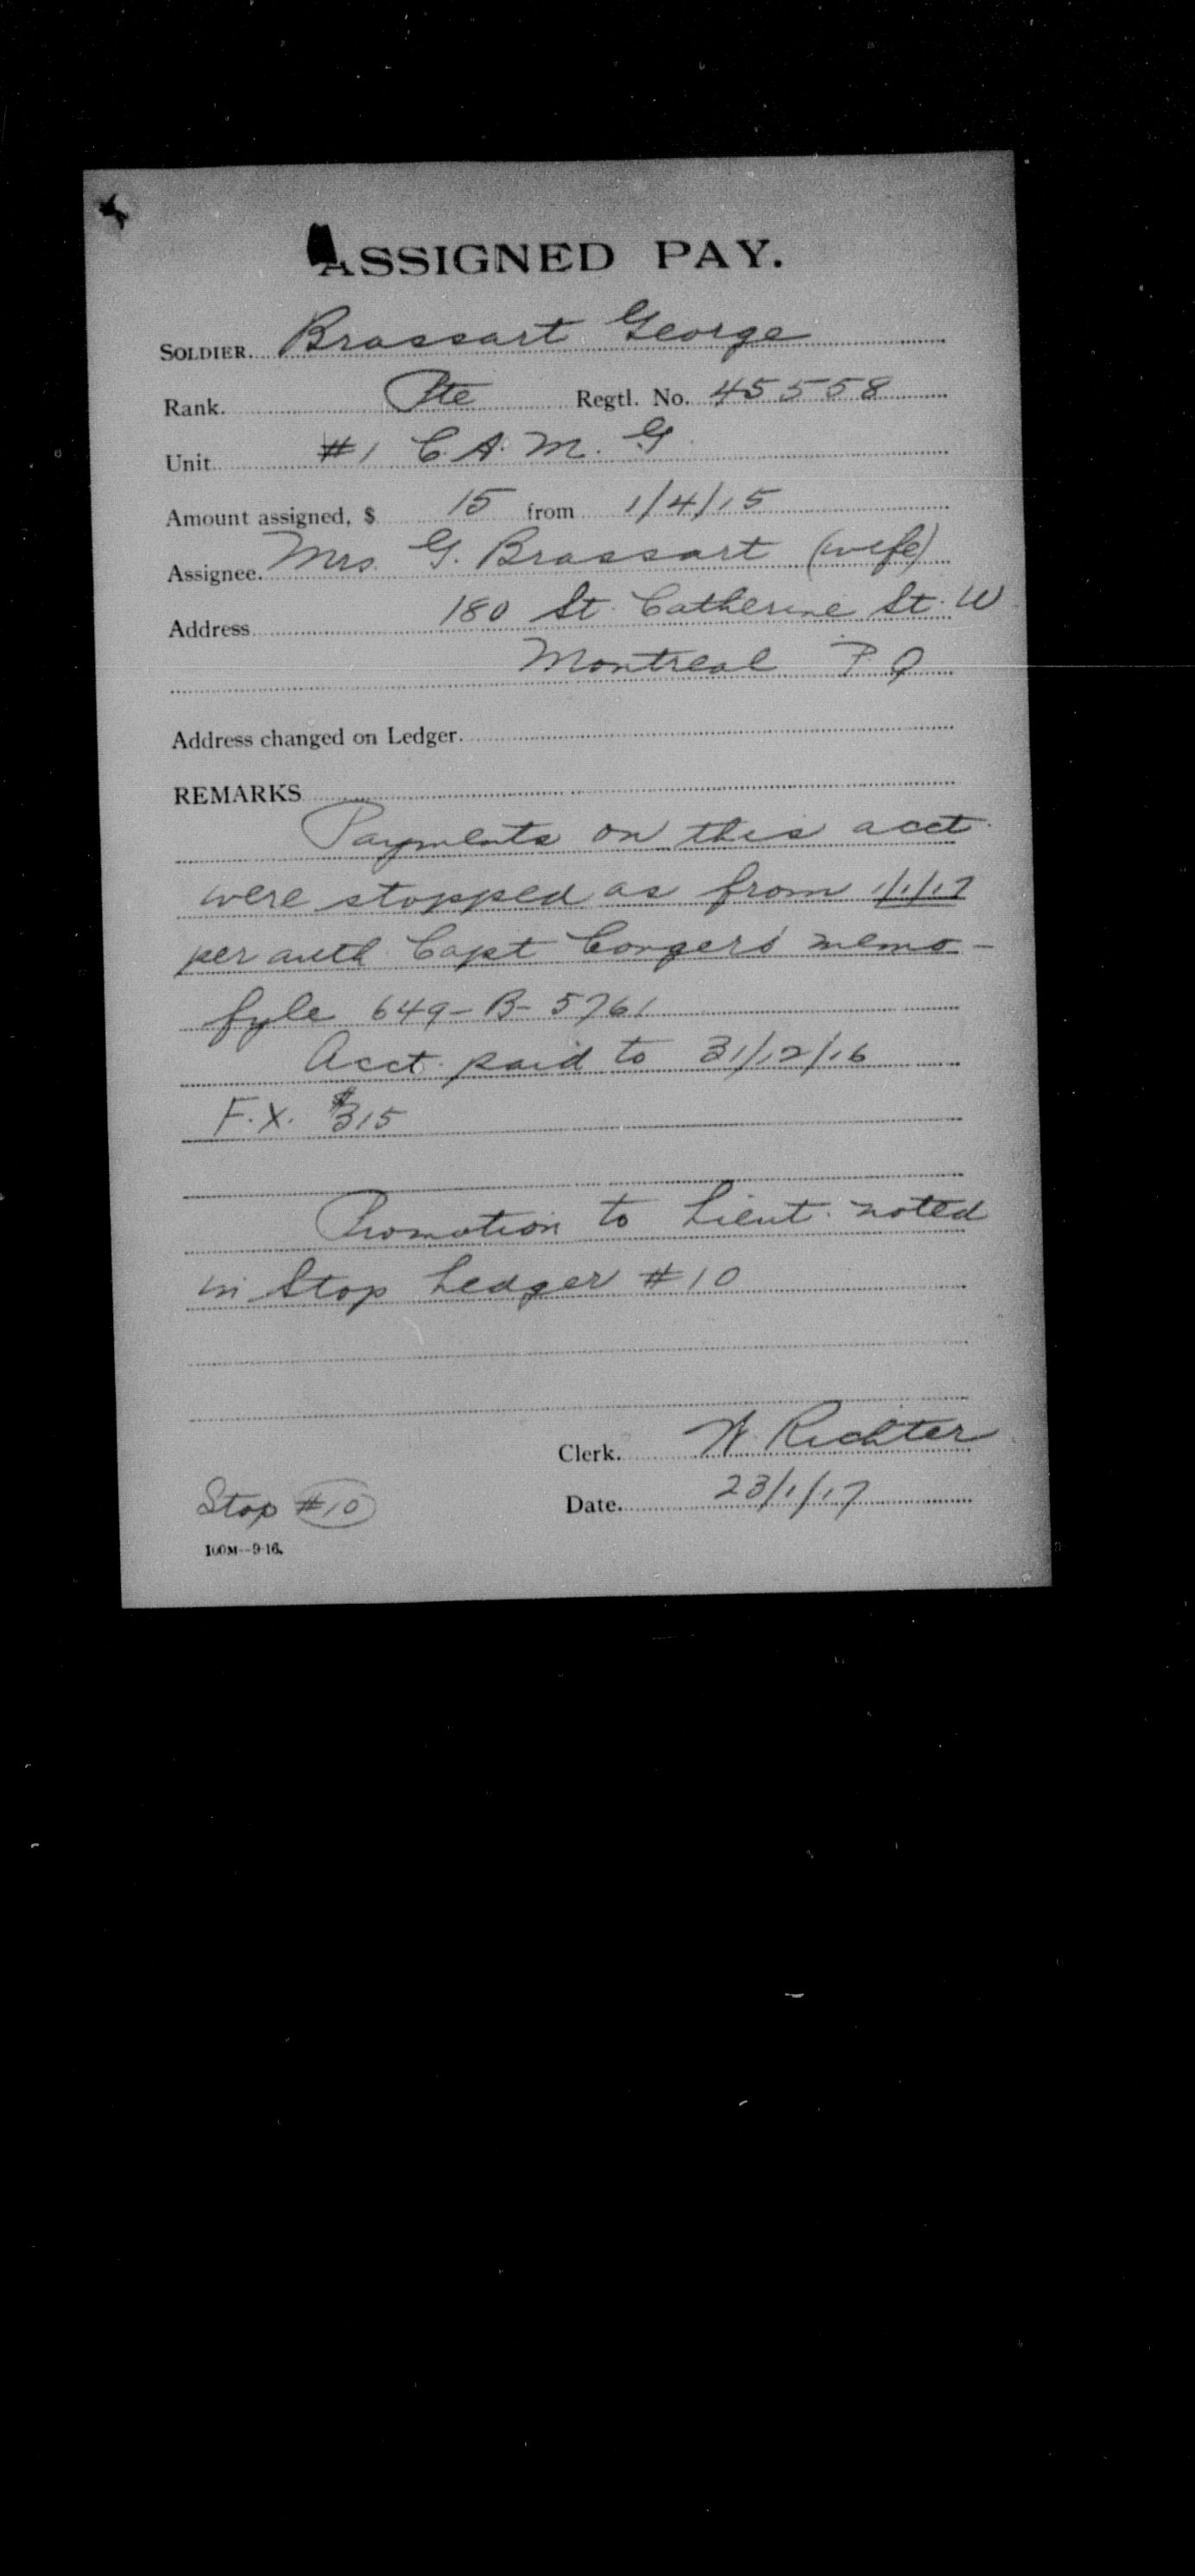 ASSIGNED PAY.
SOLDIER. Brassart George
Rank. Pte Regtl. No. 45558
Unit #1 C. A. M. G.
Amount assigned, $ 15 from 1/4/15
Assignee. Mrs. G. Brassart (wife)
Address 180 St. Catherine St. W
Montreal P. Q
Address changed on Ledger.
REMARKS
Payments on this acct.
were stopped as from 1/1/17
per auth. Capt Congers' memo -
fyle 649-B-5761
Acct. paid to 31/12/16
F.X. $315
Promotion to Lieut. noted
in Stop Ledger #10
Clerk. W. Richter
Stop #10
Date. 23/1/17
100M--9-16.